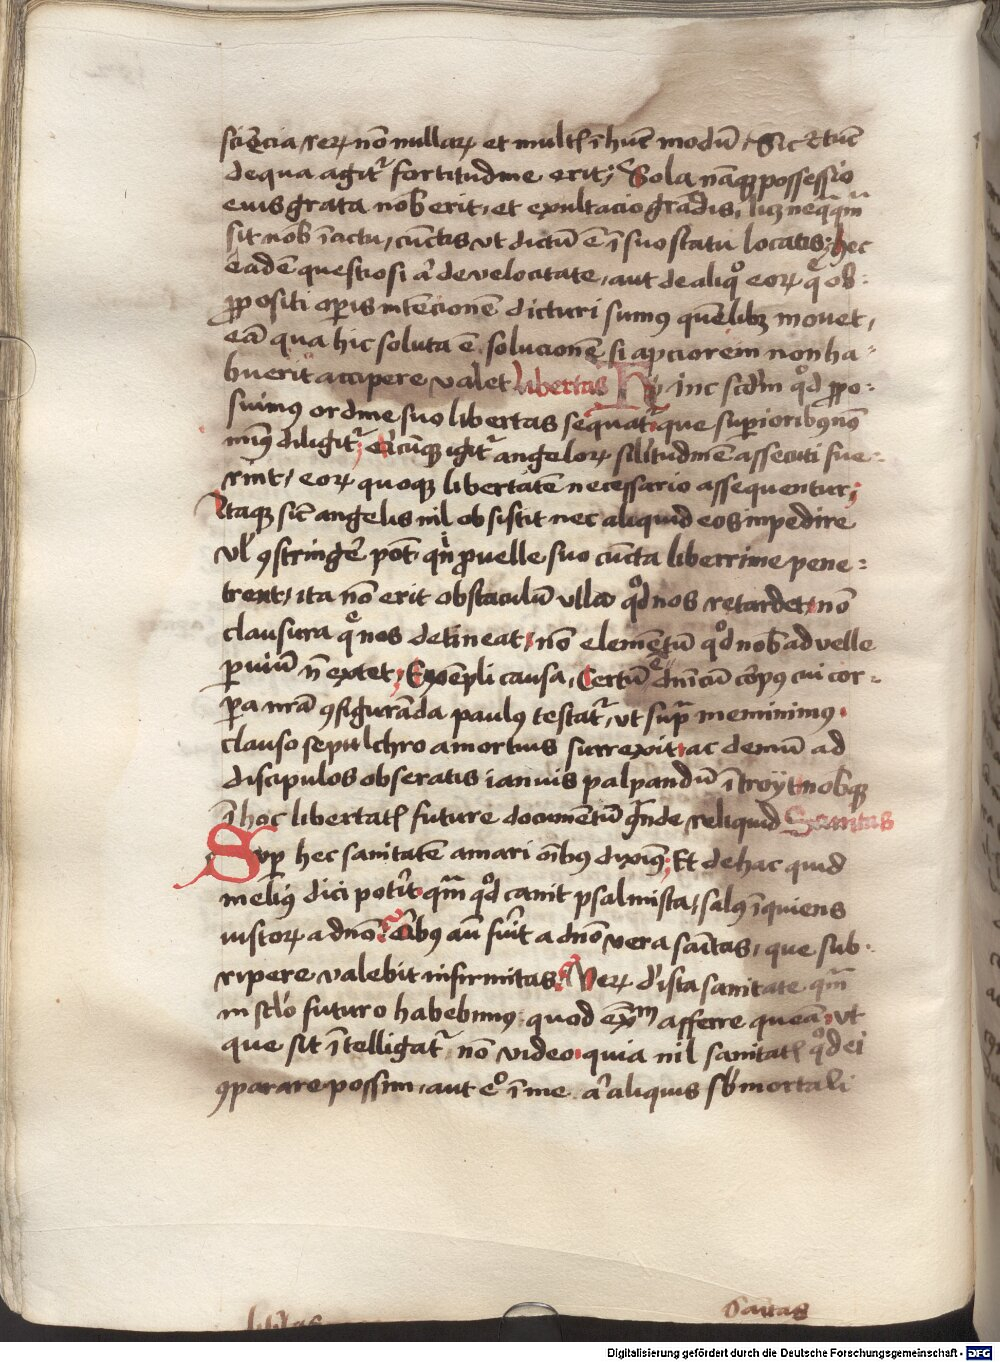 sciēcia rerꝝ nōnullarꝝ et multꝭ ī huc̄ modū, Sic et tūc
de qua agit᷑ fortitudine erit; Sola nāqꝫ possessio
euis grata nob̄ erit, et exultacio grādis, licꝫ neq̄q̄m
sit nob̄ ī actu, cūctis vt dictū ē ī suo statu locatis; hec
eadē questio si aͬ de velocitate, aut de aliqͦ eorꝝ q̄ ob
ꝓpositi oꝑis intēcionē dicturi sumꝰ quēlibꝫ mouet,
eā qua hic soluta ē solucionē si apciorem non ha-
buerit accipere valet libertas Hinc scd̄m qͦd ꝓpo-
suimꝰ ordine suo libertas sequat᷑ que suꝑioribꝰ nō
minꝰ diligit᷑; Quicūqꝫ igit᷑ angelorꝝ sil̄itudinē assecuti fue-
rint, eorꝝ quoqꝫ libertatē necessario assequentur;
Itaqꝫ sic̄ angelis nil obsistit nec aliquid eos impedire
vl̄ ꝯstringē pot̄, qn̄ ꝓ velle suo cūcta liberrime pene-
trent, ita nō erit obstaculū vllū qͦd nos retardet, nō
clausura q̄ nos detineat, nō elemētū qͦd nob̄ ad velle
ꝑuiū n̄ extet; Exēpli causa, Certū ē dn̄icū corpꝰ cui cor-
ꝑa nr̄a ꝯfigurāda paulꝰ testat᷑, vt sup̄ meminimꝰ
clauso sepulchro a mortuis surrexit, ac demū ad
discipulos obseratis ianuis palpandū ītroyt, nobqꝫ
ī hoc libertatꝭ future documentū ꝓinde reliquid Sanitas
Suꝑ hec sanitatē amari oīb̄ꝰ diximꝰ; Et de hac quid
meliꝰ dici poterit q̄m qͦd canit psalmista, salꝰ īquiens
iustorꝝ a dn̄o; Quibꝰ aū fuīt a dn̄o vera sanitas, que sub-
ripere valebit infirmitas; Verꝝ d' ista sanitate q̄m
in sc̄lo futuro habebimꝰ, quod exm̄ afferre queā, vt
que sit ītelligat᷑ nō video, quia nil sanitatꝭ qͦd ei
ꝯparare possim, aut eͦ ī me aͬ aliquis sb̄ mortali
Sanitas
Digitalisierung gefördert durch die Deutsche Forschungsgemeinschaft - DFG